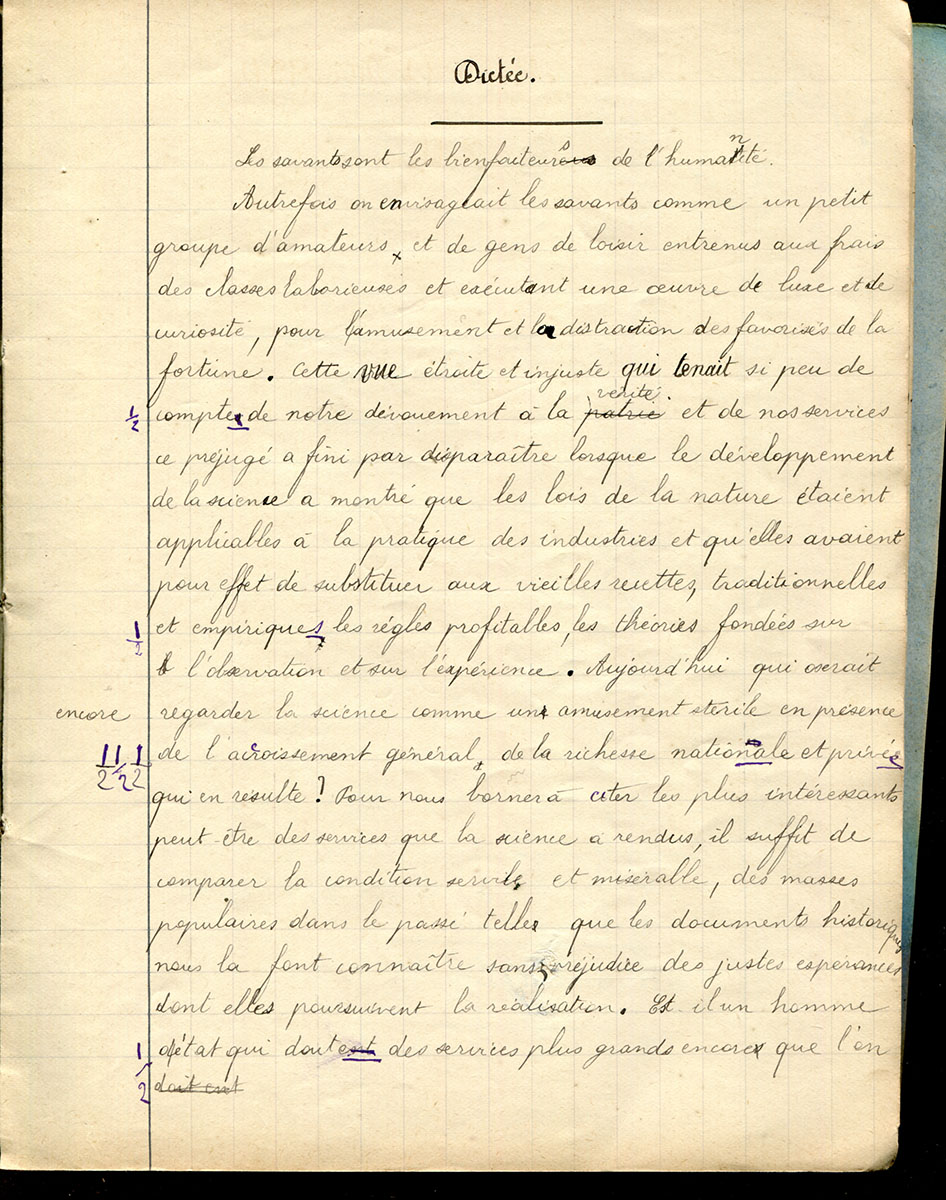 Dictée.
Les savants sont les bienfaiteurs de l'humanité.
Autrefois on envisageait les savants comme un petit
groupe d'amateurs, et de gens de loisir entrenus aux frais
des classes laborieuses et exécutant une œuvre de luxe et de
curiosité, pour l'amusement et la distraction des favorisés de la
fortune. Cette vue étroite et injuste qui tenait si peu de
vérité
1/2 comptes de notre dévouement à la patrie et de nos services
ce préjugé a fini par disparaître lorsque le développement
de la science a montré que les lois de la nature étaient
applicables à la pratique des industries et qu'elles avaient
pour effet de substituer aux vieilles recettes, traditionnelles
1/2 et empiriques les régles profitables, les théories fondées sur
l'observation et sur l'expérience. Aujourd'hui qui oserait
encore regarder la science comme un amusement stérile en présence
1/2 1/2 1/2 de l'acroissement général, de la richesse nationnale et privés
qui en résulte? Pour nous borner à citer les plus intéressants
peut-être des services que la science a rendus, il suffit de
comparer la condition servile et misérable, des masses
populaires dans le passé telles que les documents historiques
nous la font connaître sans préjudice des justes espérances
dont elles poursuivent la réalisation. Est-il un homme
1/2 d'état qui doutent des services plus grands encore que l'on
doit ent